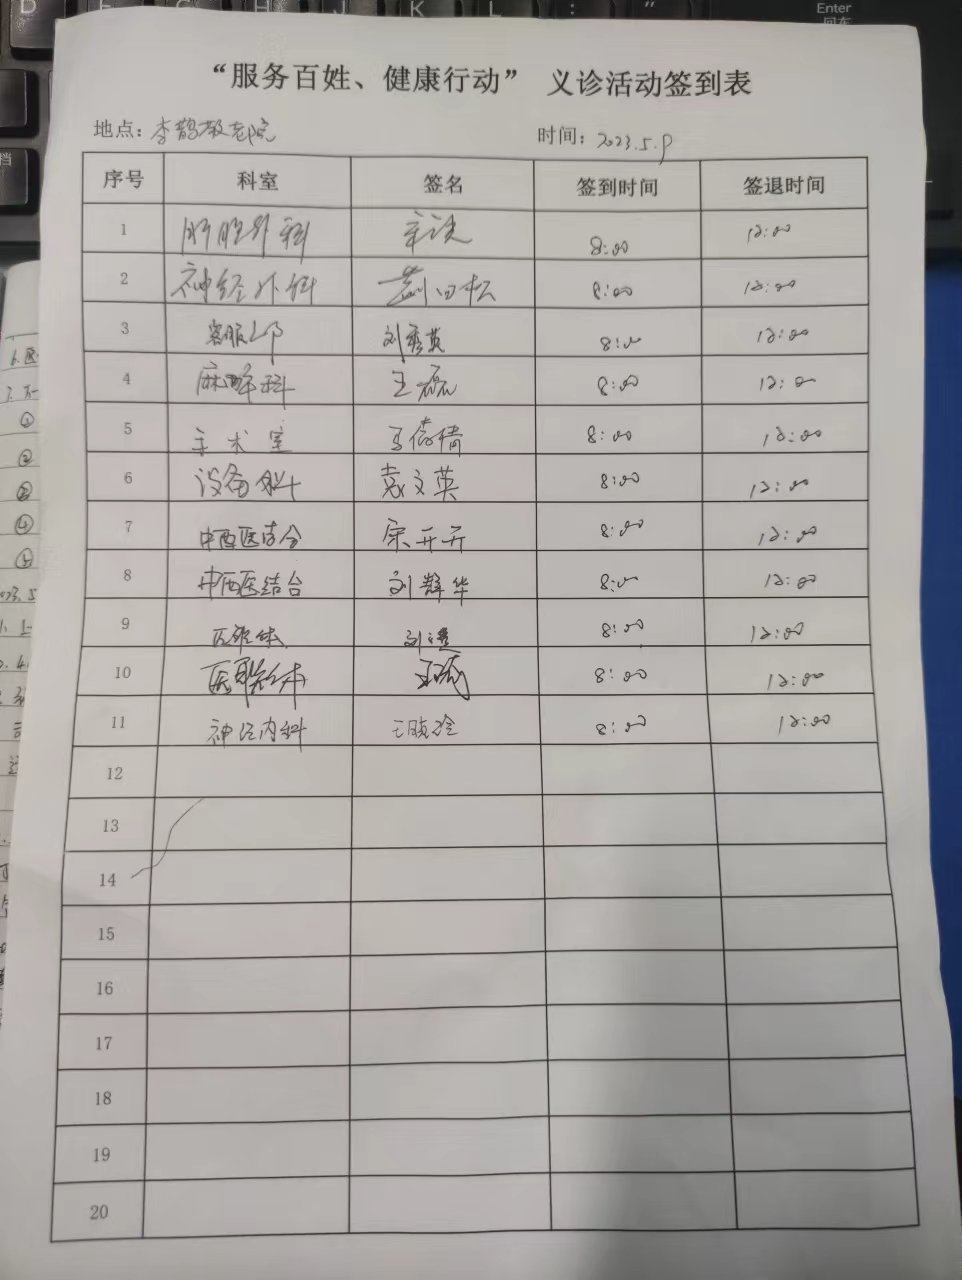 “服务百姓、健康行动” 义诊活动签到表
地点: 李鹊敬老院 时间: 2023.5.9
序号 科室 签名 签到时间 签退时间
1 肝胆外科 8:00 12:00
2 神经外科 8:00 12:00
3 客服部 刘秀英 8:00 12:00
4 麻醉科 王磊 8:00 12:00
5 手术室 8:00 12:00
6 设备科 袁文英 8:00 12:00
7 中西医结合 宋开开 8:00 12:00
8 中西医结合 刘辉华 8:00 12:00
9 医联体 8:00 12:00
10 医联体 8:00 12:00
11 神经内科 8:00 12:00
12
13
14
15
16
17
18
19
20
Enter